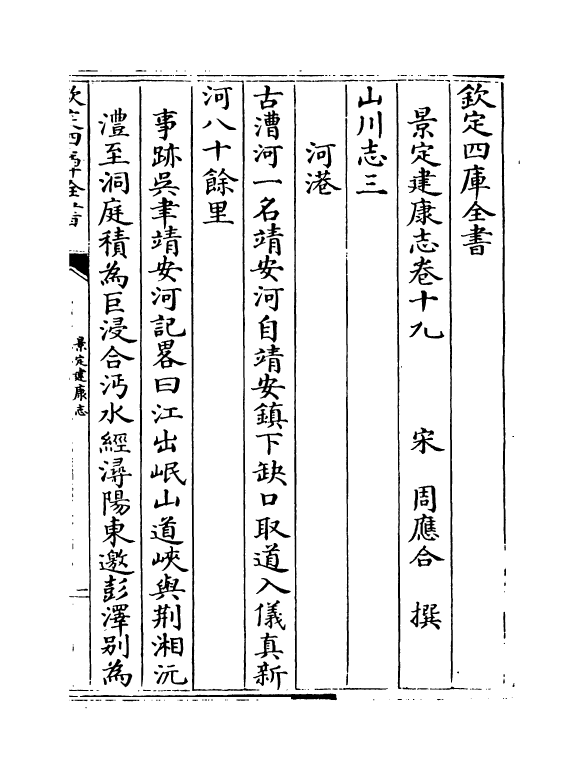 欽定四庫全書
景定建康志卷十九
宋 周應合 撰
山川志三
河港
古漕河一名靖安河自靖安鎮下缺口取道入儀真新
河八十餘里
事跡吳聿靖安河記畧曰江出岷山道峽與荆湘沅
澧至洞庭積為巨浸合沔水經潯陽東邀彭澤别為
欽定四庫全書
景定建康志